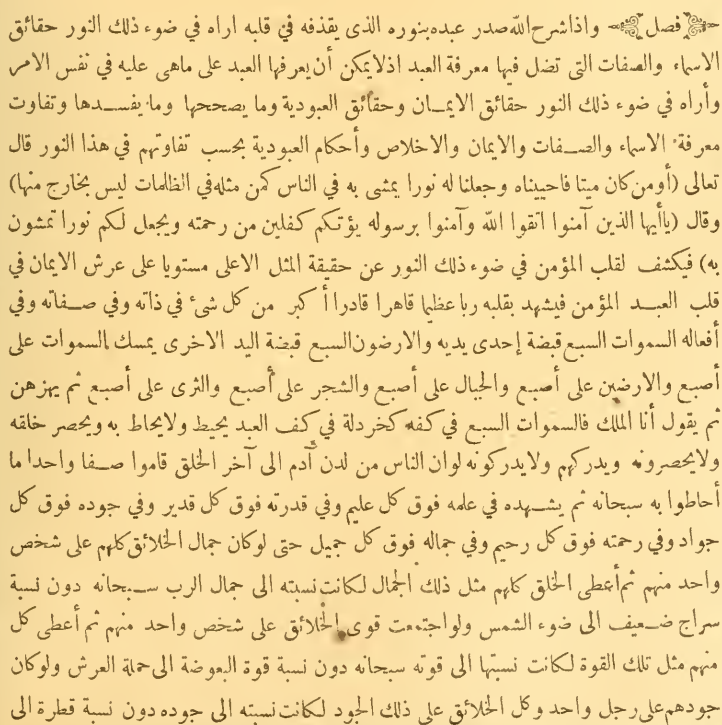 فصل واذا شرح الله صدر عبده بنوره الذى يقذفه فى قلبه اراه فى ضوء ذلك النور حقائق
الاسماء والصفات التى تضل فيها معرفة العبد اذ لا يمكن أن يعرفها العبد على ماهى عليه فى نفس الامر
وأراه فى ضوء ذلك النور حقائق الايمان وحقائق العبودية وما يصححها وما يفسدها وتفاوت
معرفة الاسماء والصفات والايمان والاخلاص وأحكام العبودية بحسب تفاوتهم فى هذا النور قال
تعالى (أومن كان ميتا فاحييناه وجعلنا له نورا يمشى به فى الناس كمن مثله فى الظلمات ليس بخارج منها)
وقال (ياأيها الذين آمنوا اتقوا الله وآمنوا برسوله يؤتكم كفلين من رحمته ويجعل لكم نورا تمشون
به) فيكشف لقلب المؤمن فى ضوء ذلك النور عن حقيقة المثل الاعلى مستويا على عرش الايمان فى
قلب العبد المؤمن فيشهد بقلبه ربا عظيما قاهرا قادرا أكبر من كل شئ فى ذاته وفى صفاته وفى
أفعاله السموات السبع قبضة إحدى يديه والارضون السبع قبضة اليد الاخرى يمسك السموات على
أصبع والارضين على أصبع والجبال على أصبع والشجر على أصبع والثرى على أصبع ثم يهزهن
ثم يقول أنا الملك فالسموات السبع فى كفه كخردلة فى كف العبد يحيط ولا يحاط به ويحصر خلقه
ولا يحصرونه ويدركهم ولا يدركونه لو ان الناس من لدن آدم الى آخر الخلق قاموا صفا واحدا ما
أحاطوا به سبحانه ثم يشهده فى علمه فوق كل عليم وفى قدرته فوق كل قدير وفى جوده فوق كل
جواد وفى رحمته فوق كل رحيم وفى جماله فوق كل جميل حتى لو كان جمال الخلائق كلهم على شخص
واحد منهم ثم أعطى الخلق كلهم مثل ذلك الجمال لكانت نسبته الى جمال الرب سبحانه دون نسبة
سراج ضعيف الى ضوء الشمس ولو اجتمعت قوى الخلائق على شخص واحد منهم ثم أعطى كل
منهم مثل تلك القوة لكانت نسبتها الى قوته سبحانه دون نسبة قوة البعوضة الى حملة العرش ولو كان
جودهم على رجل واحد وكل الخلائق على ذلك الجود لكانت نسبته الى جوده دون نسبة قطرة الى